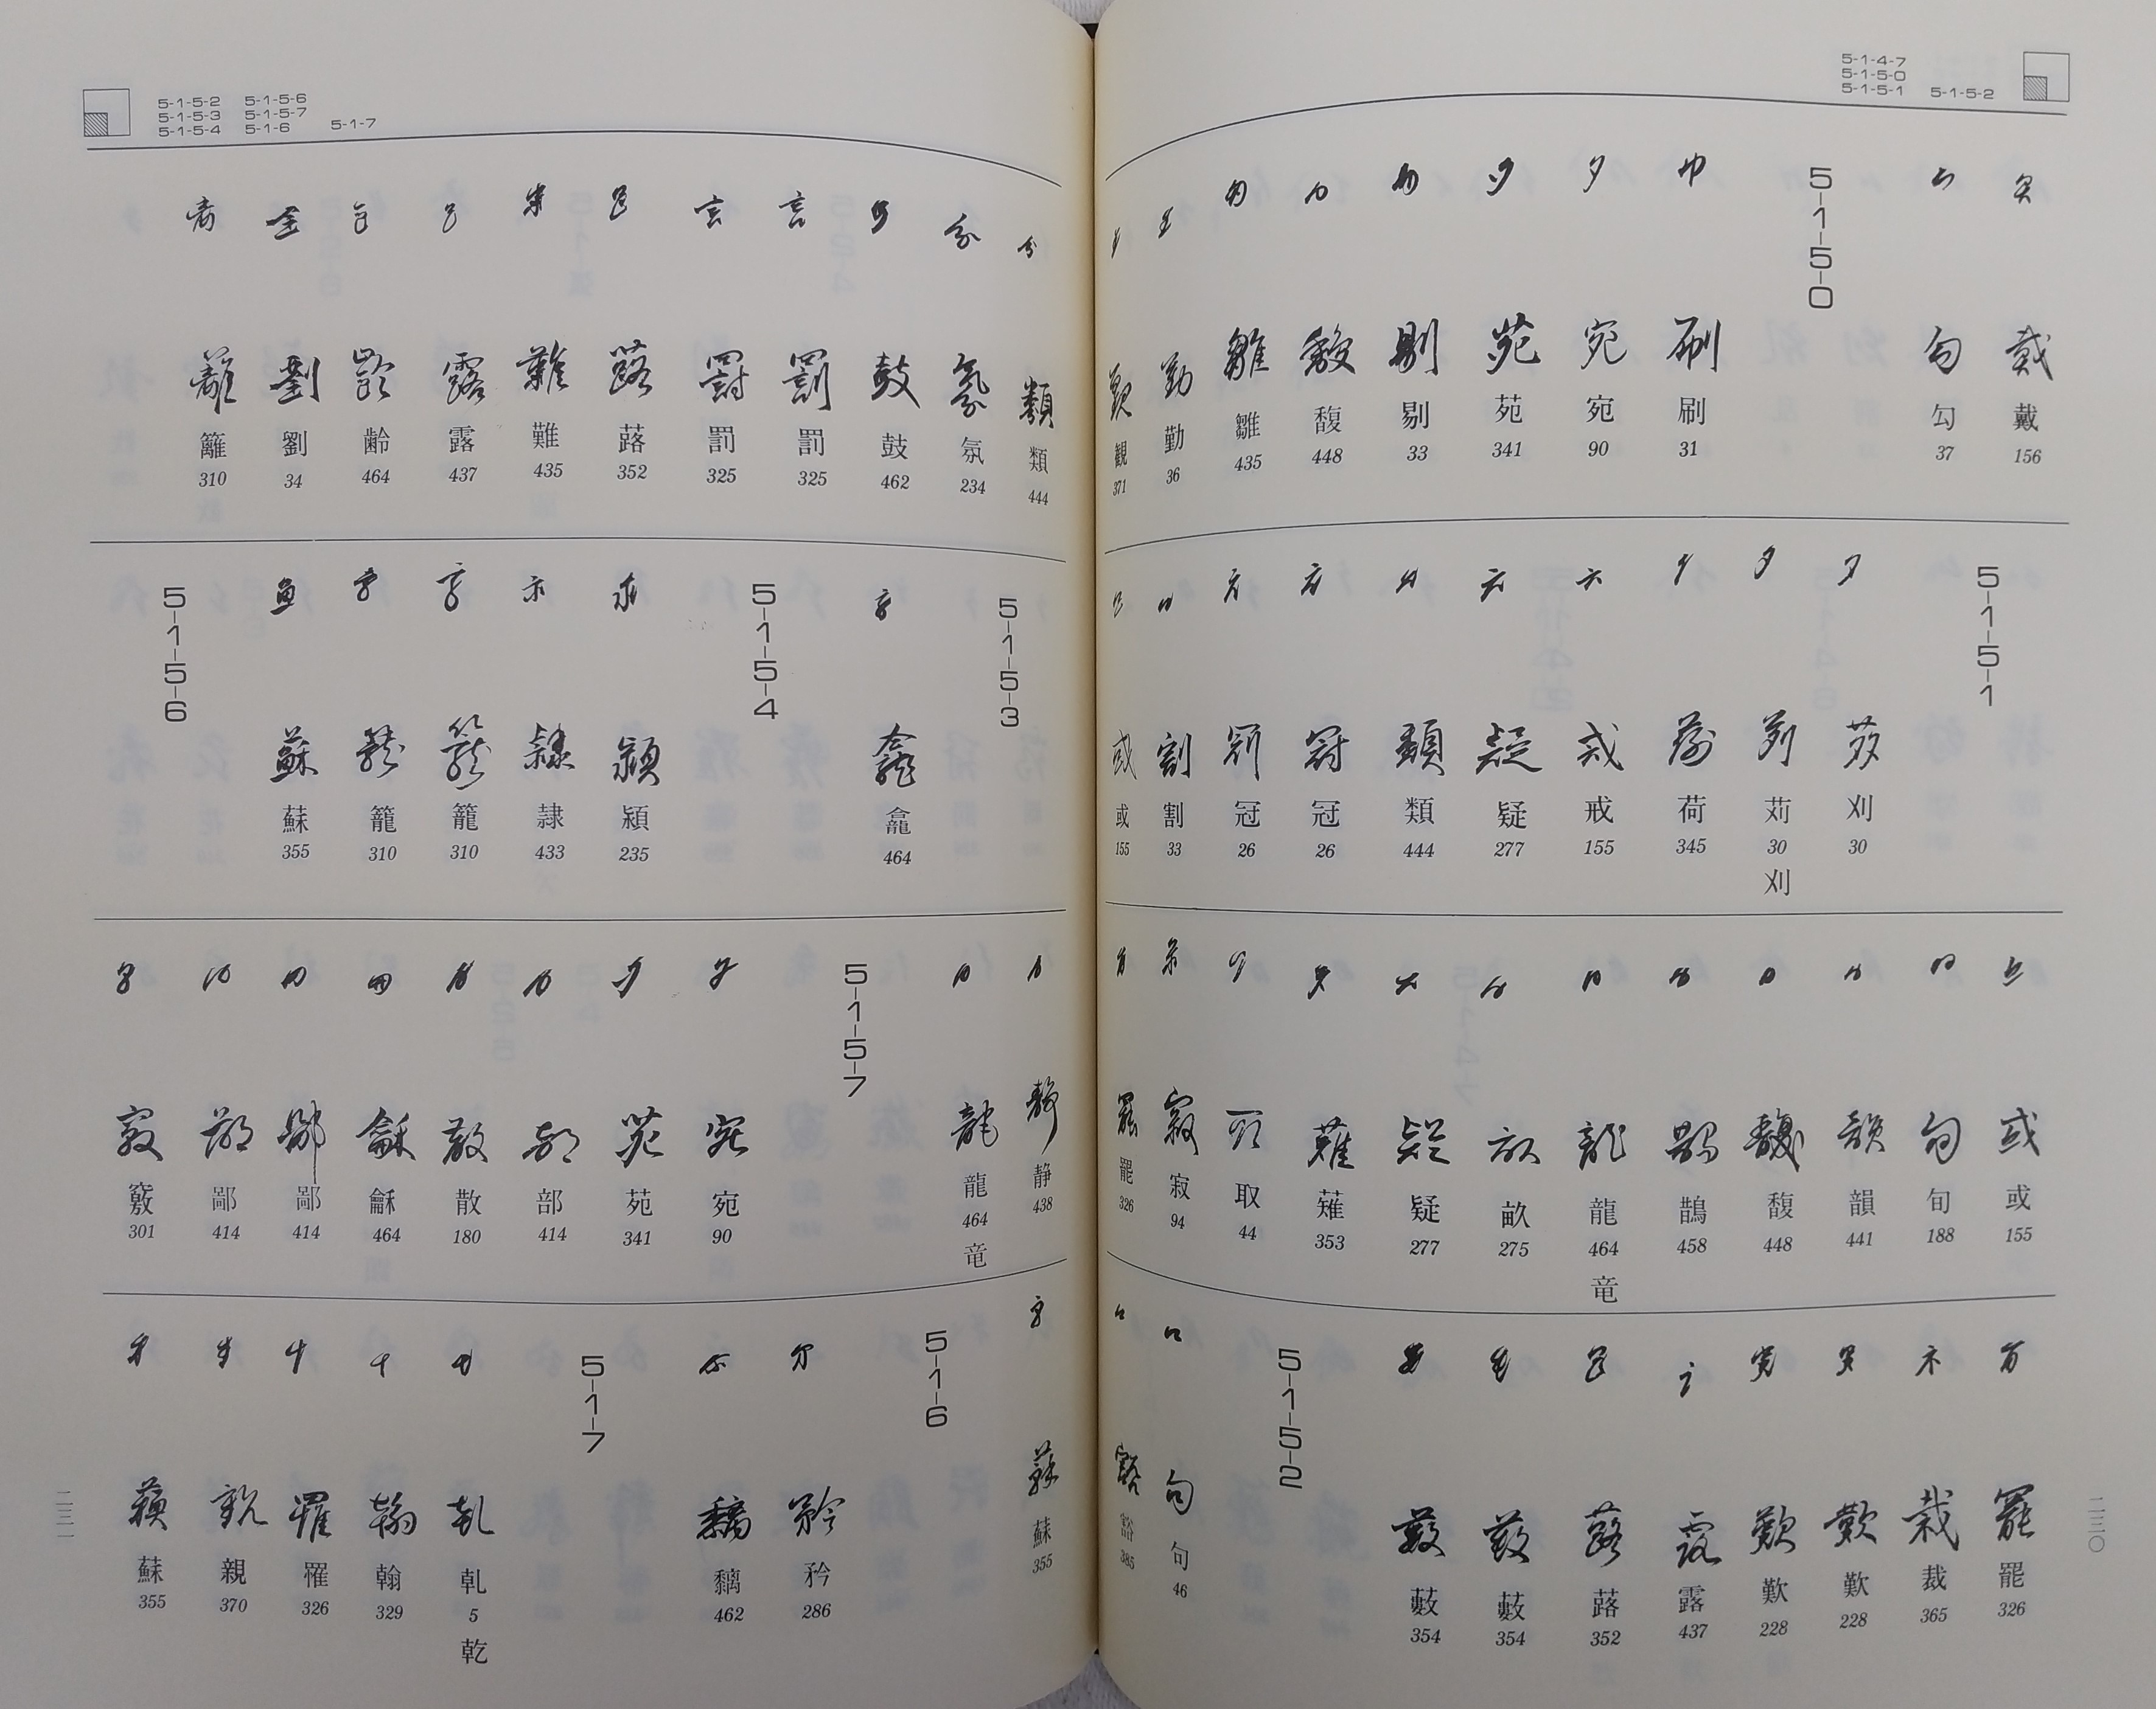 5-1-4-7
5-1-5-0
5-1-5-1 5-1-5-2
戴 156
勾 37
5-1-5-0
刷 31
宛 90
苑 341
剔 33
馥 448
雛 435
勤 36
観 371
5-1-5-1
刈 30
苅 30 刈
荷 345
戒 155
疑 277
類 444
冠 26
冠 26
割 33
或 155
或 155
旬 188
韻 441
馥 448
鵲 458
龍 464 竜
畝 275
疑 277
薙 353
取 44
寂 94
罷 326
罷 326
裁 365
歎 228
歎 228
露 437
蕗 352
薮 354
薮 354
5-1-5-2
句 46
谿 385
二三〇
5-1-5-2 5-1-5-6
5-1-5-3 5-1-5-7
5-1-5-4 5-1-6 5-1-7
類 444
氛 234
鼓 462
罰 325
罰 325
蕗 352
難 435
露 437
齢 464
劉 34
籬 310
5-1-5-3
龕 464
5-1-5-4
潁 235
隷 433
籠 310
籠 310
蘇 355
5-1-5-6
静 438
龍 464 竜
5-1-5-7
宛 90
苑 341
部 414
散 180
龢 464
鄙 414
鄙 414
竅 301
蘇 355
5-1-6
矜 286
黐 462
5-1-7
乹 5 乾
翰 329
罹 326
親 370
蘇 355
二三一